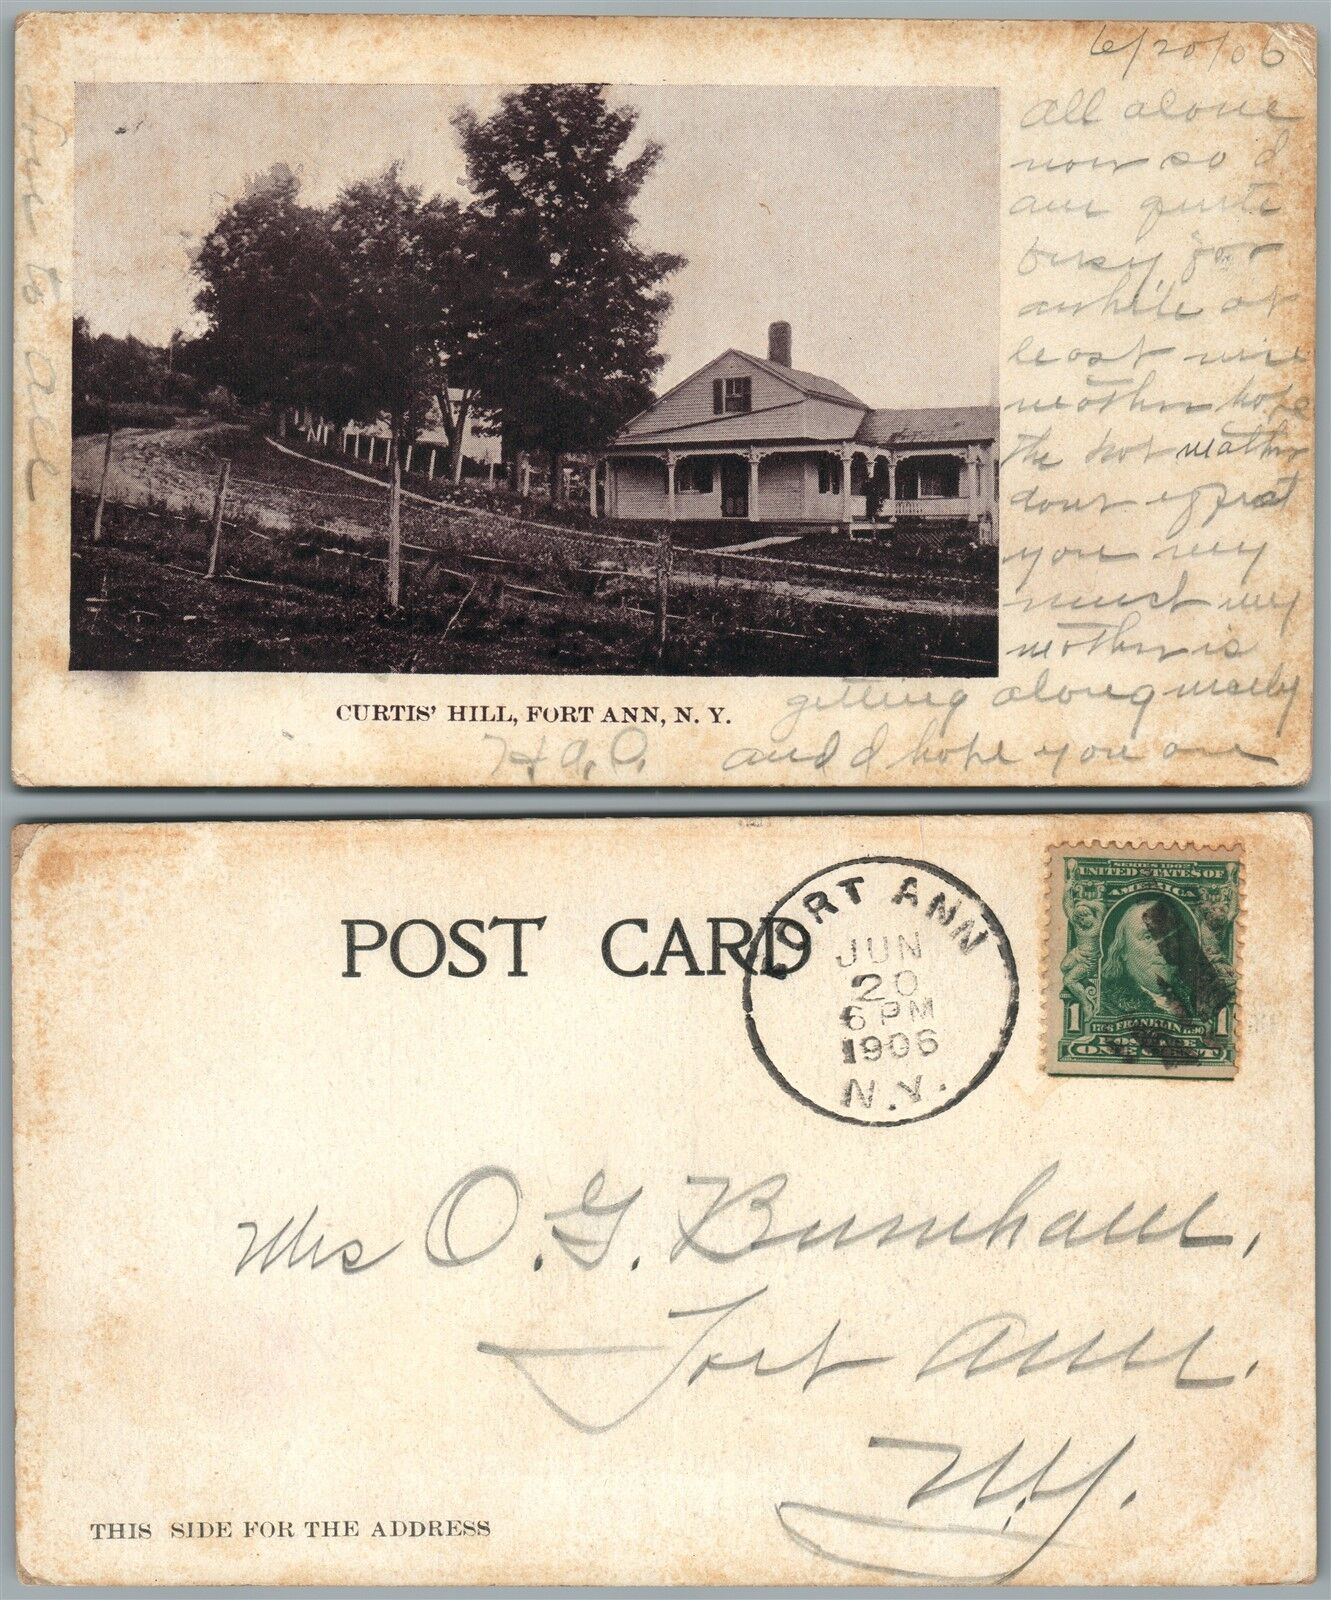 6/20/06
all alone
now so I
am quite
busy for
awhile at
least use
mother
the hot weather
dont expect
you very
much my
mother is
getting along nicely
and I hope you are
H.A.C.
to all
CURTIS' HILL, FORT ANN, N. Y.
POST CARD
FORT ANN
JUN
20
6 PM
1906
N.Y.
SERIES 1902
UNITED STATES OF
AMERICA
1 1706 FRANKLIN 1790 1
POSTAGE
ONE CENT
Mrs O. G. Burnham,
Fort Ann.
N.Y.
THIS SIDE FOR THE ADDRESS